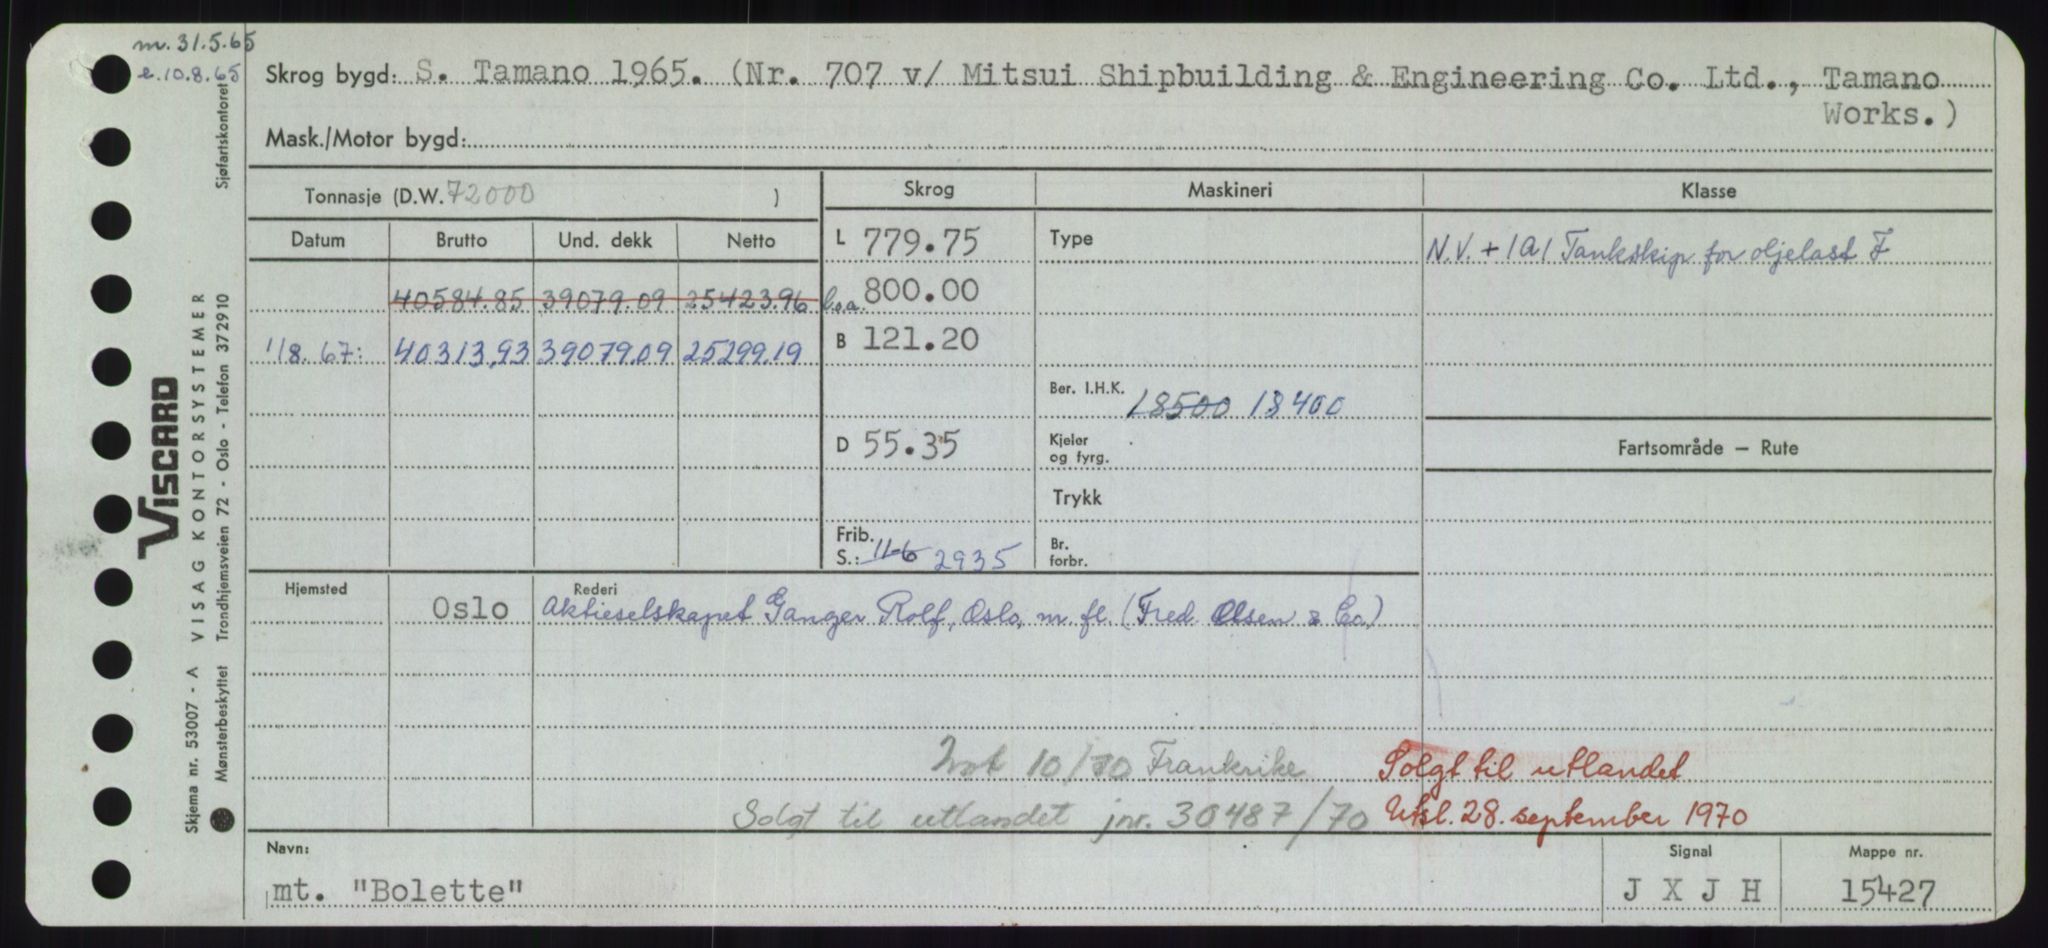 m. 31.5.65
e. 10.8.65
Skrog bygd: S. Tamano 1965. (Nr. 707 v/ Mitsui Shipbuilding & Engineering Co. Ltd., Tamano
Works.)
Mask./Motor bygd:
Tonnasje (D.W. 72000 )
Skrog
Maskineri
Klasse
Datum Brutto Und. dekk Netto
L 779.75
Type
N.V. + 1A1 Tankskip for oljelast F
40584.85 39079.09 25423.96
l.o.a. 800.00
1/8.67: 40313,93 39079.09 25299.19
B 121.20
Ber. I.H.K. 18500 18400
D 55.35
Kjeler
og fyrg.
Fartsområde — Rute
Trykk
Frib.
S.: 11-6 2935
Br.
forbr.
Hjemsted
Oslo
Rederi
Aktieselskapet Ganger Rolf, Oslo, m. fl. (Fred. Olsen & Co.)
10/70 Frankrike
Solgt til utlandet
Solgt til utlandet jnr. 30487/70
Utsl. 28. september 1970
Navn:
mt. "Bolette"
Signal
J X J H
Mappe nr.
15427
VISCARD
Skjema nr. 53007 - A VISAG KONTORSYSTEMER
Mønsterbeskyttet Trondhjemsveien 72 - Oslo - Telefon 372910 Sjøfartskontoret